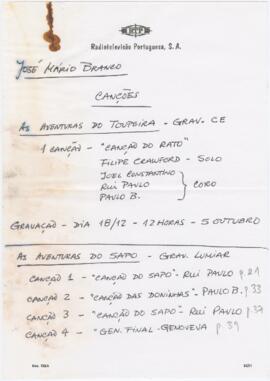 RTP
Radiotelevisão Portuguesa, S.A.
JOSÉ MÁRIO BRANCO
CANÇÕES
AS AVENTURAS DO TOUPEIRA - GRAV. CE
1 CANÇÃO - "CANÇÃO DO RATO"
FILIPE CRAWFORD - SOLO
JOEL CONSTANTINO
RUI PAULO
PAULO B.
CORO
GRAVAÇÃO - DIA 18/12 - 12 HORAS - 5 OUTUBRO
AS AVENTURAS DO SAPO - GRAV. LUMIAR
CANÇÃO 1 - "CANÇÃO DO SAPO" - RUI PAULO p.21
CANÇÃO 2 - "CANÇÃO DAS DONINHAS" - PAULO B. p.33
CANÇÃO 3 - "CANÇÃO DO SAPO" - RUI PAULO p.37
CANÇÃO 4 - "GEN. FINAL - GENOVEVA p.39